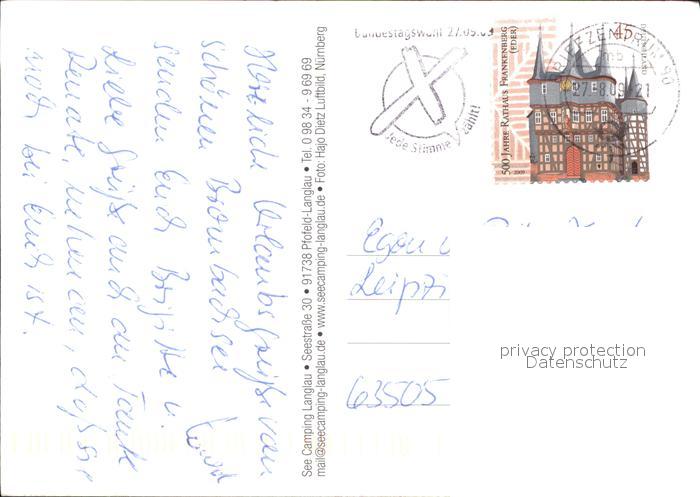 Herzliche Urlaubsgrüße vom
schönen Brombachsee
senden Euch Brigitte u.
Liebe Grüße auch an Tante
Renate, nehmen an, daß sie
noch bei Euch ist.
See Camping Langlau • Seestraße 30 • 91738 Pfofeld-Langlau • Tel. 0 98 34 - 9 69 69
mail@seecamping-langlau.de • www.seecamping-langlau.de • Foto: Hajo Dietz Luftbild, Nürnberg
Bundestagswahl 27.09.09
Jede Stimme zählt!
BRIEFZENTRUM
mb
27.8.09-21
45
500 JAHRE RATHAUS FRANKENBERG
(EDER)
2009
Egon
Leipzi
63505
privacy protection
Datenschutz